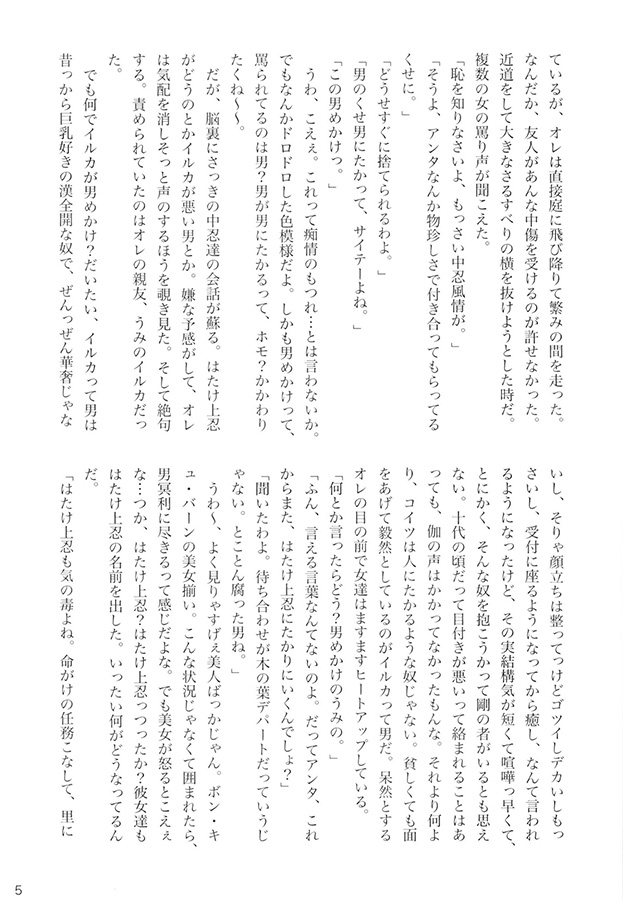 ているが、オレは直接庭に飛び降りて繁みの間を走った。
なんだか、友人があんな中傷を受けるのが許せなかった。
近道をして大きなさるすべりの横を抜けようとした時だ。
複数の女の罵り声が聞こえた。
「恥を知りなさいよ、もっさい中忍風情が。」
「そうよ、アンタなんか物珍しさで付き合ってもらってる
くせに。」
「どうせすぐに捨てられるわよ。」
「男のくせ男にたかって、サイテーよね。」
「この男めかけっ。」
うわ、こえぇ。これって痴情のもつれ…とは言わないか。
でもなんかドロドロした色模様だよ。しかも男めかけって、
罵られてるのは男？男が男にたかるって、ホモ？かかわり
たくね〜〜。
だが、脳裏にさっきの中忍達の会話が蘇る。はたけ上忍
がどうのとかイルカが悪い男とか。嫌な予感がして、オレ
は気配を消しそっと声のするほうを覗き見た。そして絶句
する。責められていたのはオレの親友、うみのイルカだっ
た。
でも何でイルカが男めかけ？だいたい、イルカって男は
昔っから巨乳好きの漢全開な奴で、ぜんっぜん華奢じゃな
いし、そりゃ顔立ちは整ってっけどゴツイしデカいしもっ
さいし、受付に座るようになってから癒し、なんて言われ
るようになったけど、その実結構気が短くて喧嘩っ早くて、
とにかく、そんな奴を抱こうかって剛の者がいるとも思え
ない。十代の頃だって目付きが悪いって絡まれることはあ
っても、伽の声はかかってなかったもんな。それより何よ
り、コイツは人にたかるような奴じゃない。貧しくても面
をあげて毅然としているのがイルカって男だ。呆然とする
オレの目の前で女達はますますヒートアップしている。
「何とか言ったらどう？男めかけのうみの。」
「ふん、言える言葉なんてないのよ。だってアンタ、これ
からまた、はたけ上忍にたかりにいくんでしょ？」
「聞いたわよ。待ち合わせが木の葉デパートだっていうじ
ゃない。とことん腐った男ね。」
うわ〜、よく見りゃすげぇ美人ばっかじゃん。ボン・キ
ュ・バーンの美女揃い。こんな状況じゃなくて囲まれたら、
男冥利に尽きるって感じだよな。でも美女が怒るとこえぇ
な…つか、はたけ上忍？はたけ上忍っつったか？彼女達も
はたけ上忍の名前を出した。いったい何がどうなってるん
だ。
「はたけ上忍も気の毒よね。命がけの任務こなして、里に
5